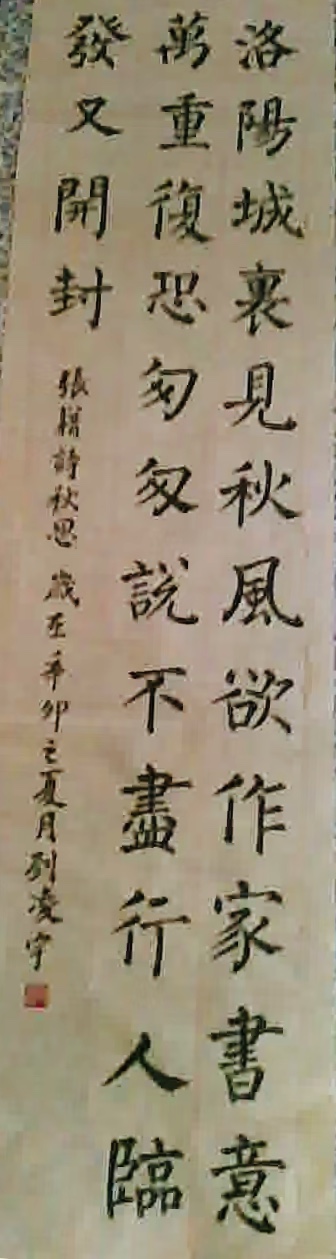 洛陽城裏見秋風欲作家書意
萬重復恐匆匆說不盡行人臨
發又開封
張籍詩秋思 歲在辛卯之夏月刘凌宇